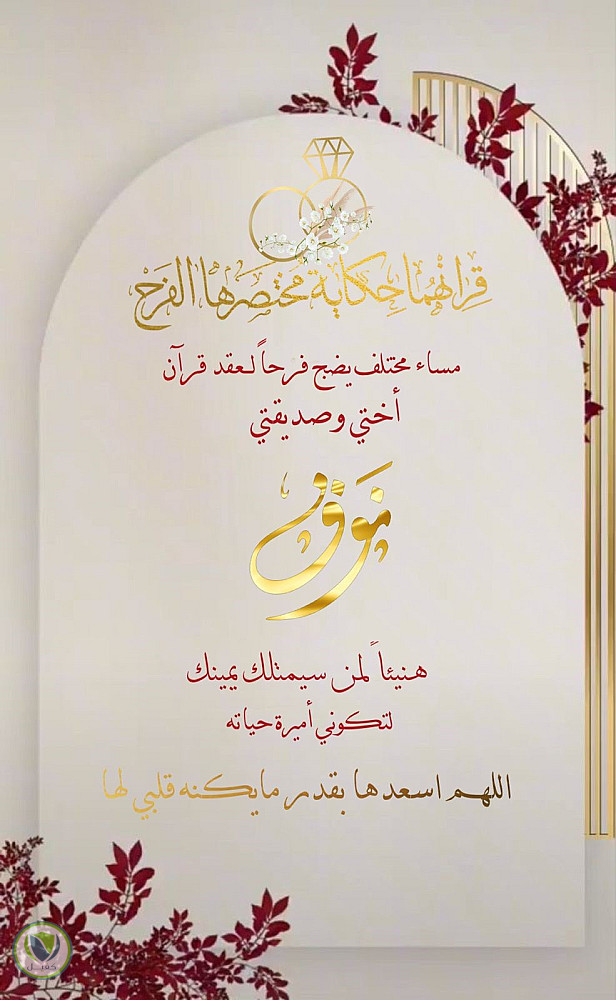 قرانهما حكاية مختصرها الفرح
مساء مختلف يضج فرحاً لعقد قرآن
أختي وصديقتي
نوف
هنيئاً لمن سيمتلك يمينك
لتكوني أميرة حياته
اللهم اسعدها بقدر مايكنه قلبي لها